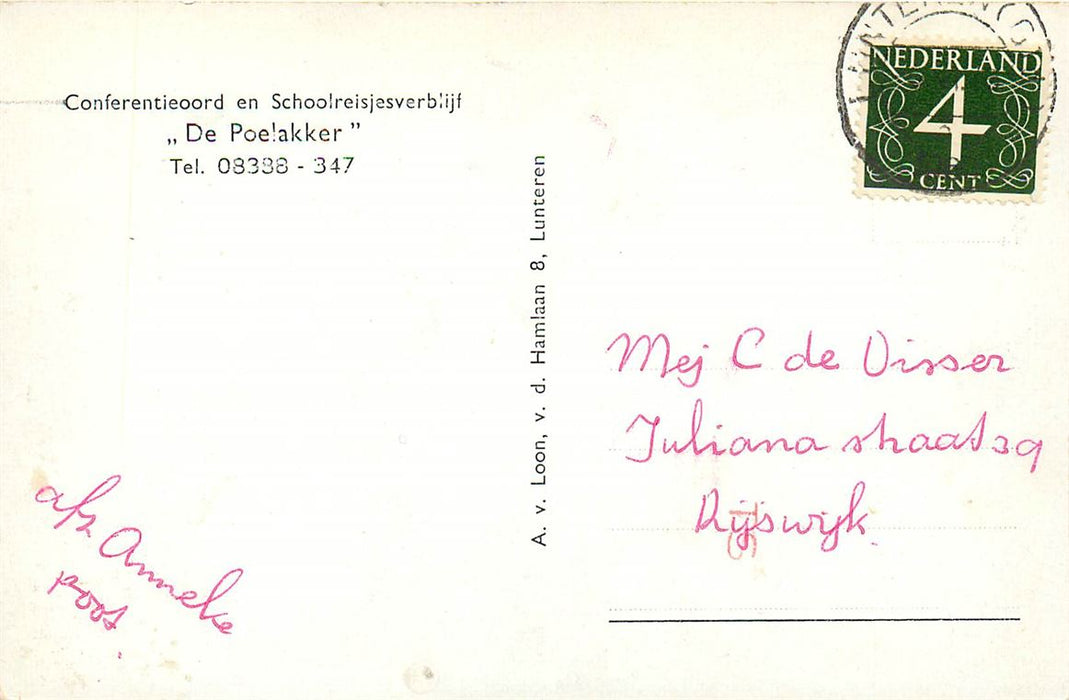 Conferentieoord en Schoolreisjesverblijf
„De Poelakker”
Tel. 08388 - 347
A. v. Loon, v. d. Hamlaan 8, Lunteren
LUNTEREN (G
NEDERLAND
4
CENT
Mej C de Visser
Juliana straat 39
Rijswijk.
afz Anneke
post.